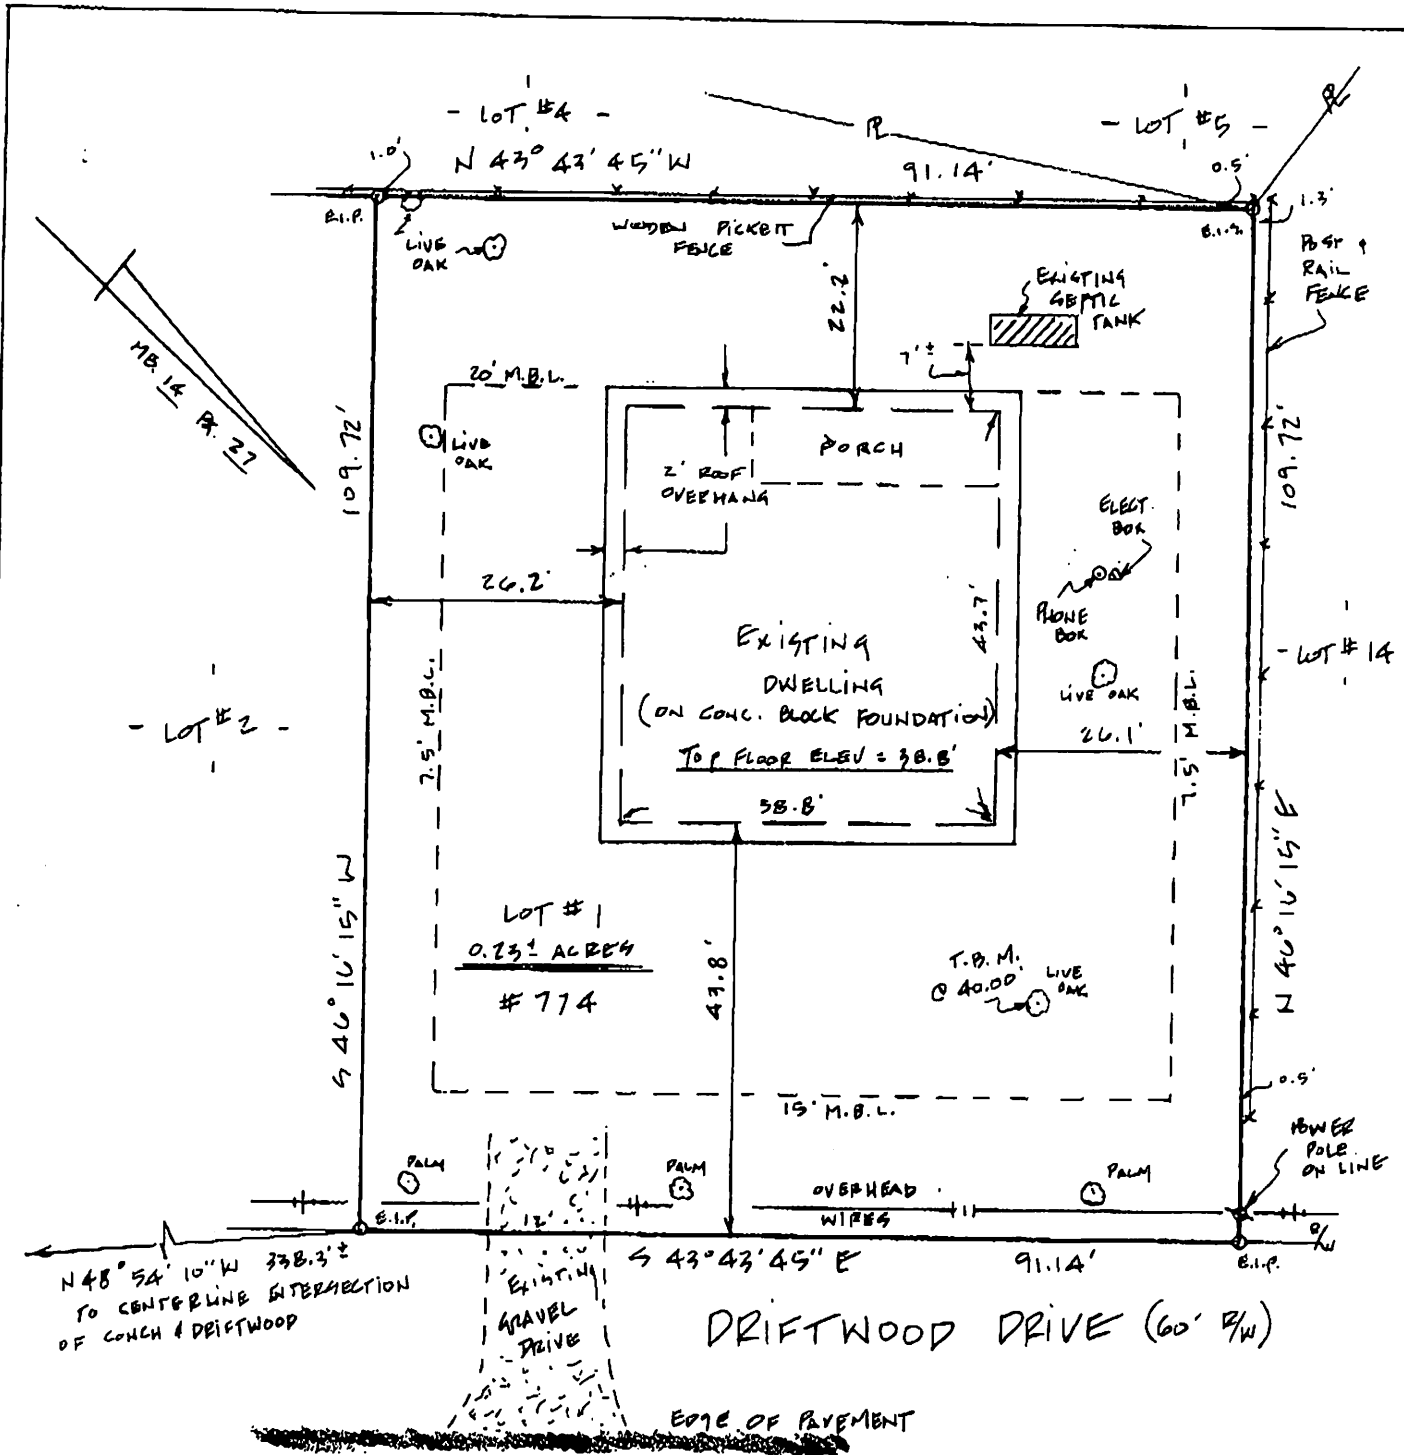 - LOT #4 -
- LOT #5 -
1.0'
N 43° 43' 45" W
91.14'
0.5'
1.3'
E.I.P.
WOODEN PICKETT
FENCE
LIVE
OAK
POST &
RAIL
FENCE
22.2'
EXISTING
SEPTIC
TANK
7'±
MB. 14 PG. 27
20' M.B.L.
109.72'
LIVE
OAK
PORCH
2' ROOF
OVERHANG
109.72'
ELECT.
BOX
PHONE
BOX
26.2'
43.7'
EXISTING
DWELLING
(ON CONC. BLOCK FOUNDATION)
TOP FLOOR ELEV = 38.8'
38.8'
- LOT #14
LIVE OAK
26.1'
7.5' M.B.L.
7.5' M.B.L.
- LOT #2 -
S 46° 16' 15" W
N 46° 16' 15" E
LOT #1
0.23± ACRES
#774
43.8'
T.B.M.
@ 40.00'
LIVE
OAK
15' M.B.L.
0.5'
POWER
POLE
ON LINE
PALM
PALM
PALM
OVERHEAD
WIRES
E.I.P.
12'
R/W
E.I.P.
S 43° 43' 45" E
91.14'
N 48° 54' 10" W 338.3'±
TO CENTERLINE INTERSECTION
OF CONCH & DRIFTWOOD
EXISTING
GRAVEL
DRIVE
DRIFTWOOD DRIVE (60' R/W)
EDGE OF PAVEMENT